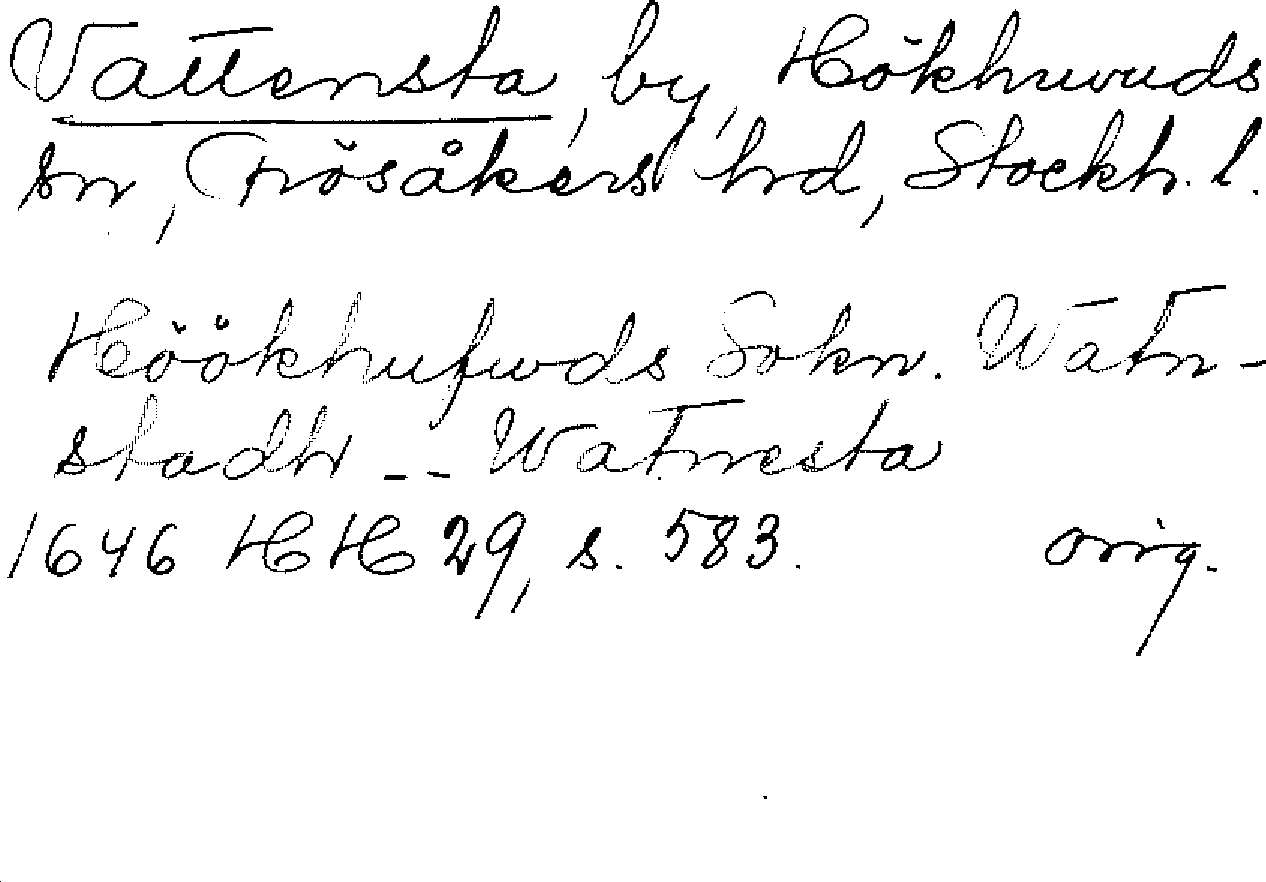 Vattensta, by, Hökhuvuds
sn, Frösåkers hrd, Stockh. l.
Höökhufwds Sokn. Watn-
stadh -- Watnesta
1646 HH 29, s. 583. orig.